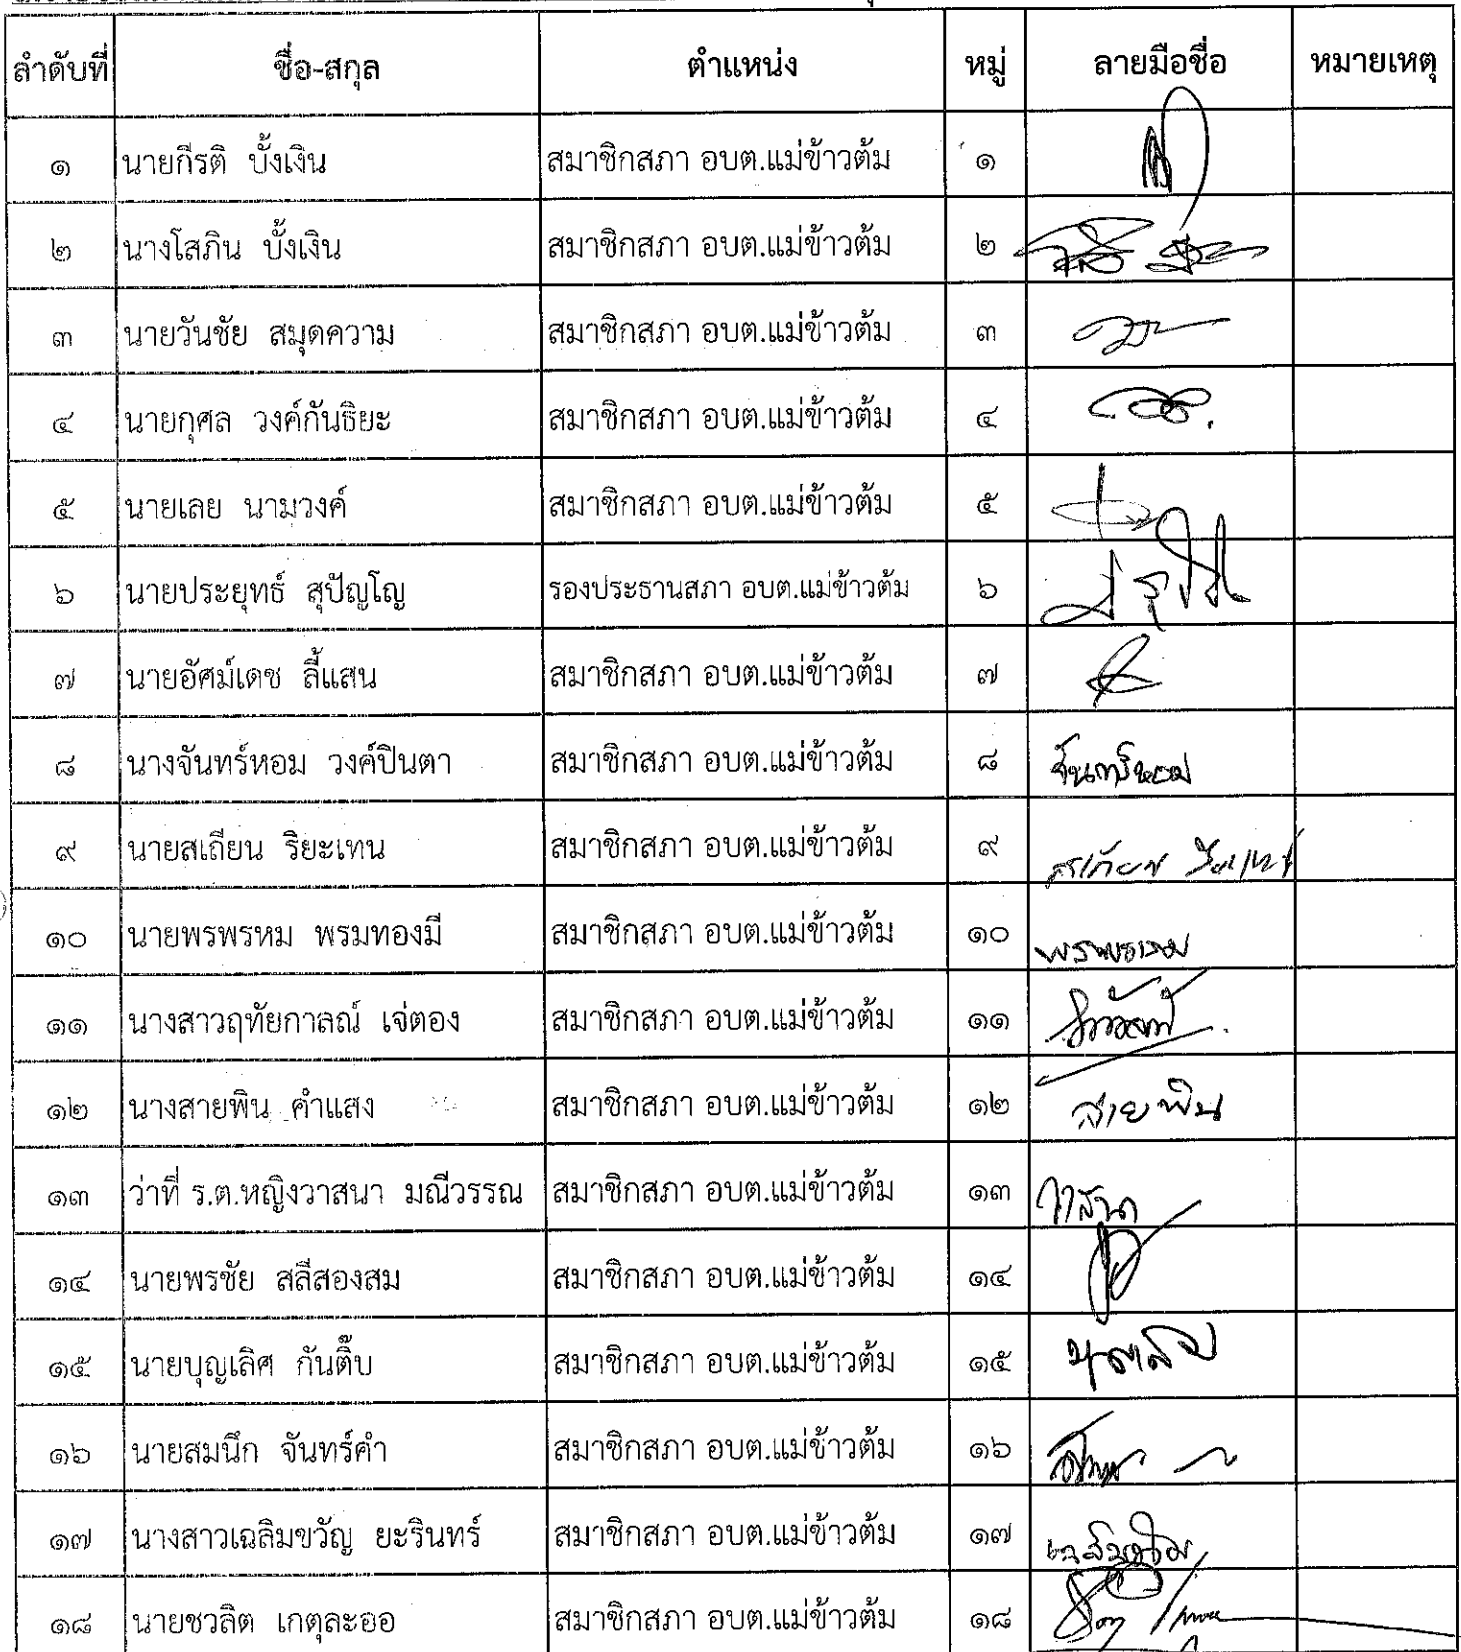 ลำดับที่ ชื่อ-สกุล ตำแหน่ง หมู่ ลายมือชื่อ หมายเหตุ
๑ นายกีรติ บั้งเงิน สมาชิกสภา อบต.แม่ข้าวต้ม ๑
๒ นางโสภิน บั้งเงิน สมาชิกสภา อบต.แม่ข้าวต้ม ๒
๓ นายวันชัย สมุดความ สมาชิกสภา อบต.แม่ข้าวต้ม ๓
๔ นายกุศล วงค์กันธิยะ สมาชิกสภา อบต.แม่ข้าวต้ม ๔
๕ นายเลย นามวงค์ สมาชิกสภา อบต.แม่ข้าวต้ม ๕
๖ นายประยุทธ์ สุปัญโญ รองประธานสภา อบต.แม่ข้าวต้ม ๖
๗ นายอัศม์เดช ลี้แสน สมาชิกสภา อบต.แม่ข้าวต้ม ๗
๘ นางจันทร์หอม วงค์ปินตา สมาชิกสภา อบต.แม่ข้าวต้ม ๘ จันทร์หอม
๙ นายสเถียน ริยะเทน สมาชิกสภา อบต.แม่ข้าวต้ม ๙
๑๐ นายพรพรหม พรมทองมี สมาชิกสภา อบต.แม่ข้าวต้ม ๑๐ พรพรหม
๑๑ นางสาวฤทัยกาลณ์ เจ่ตอง สมาชิกสภา อบต.แม่ข้าวต้ม ๑๑
๑๒ นางสายพิน คำแสง สมาชิกสภา อบต.แม่ข้าวต้ม ๑๒ สายพิน
๑๓ ว่าที่ ร.ต.หญิงวาสนา มณีวรรณ สมาชิกสภา อบต.แม่ข้าวต้ม ๑๓ วาสนา
๑๔ นายพรชัย สลีสองสม สมาชิกสภา อบต.แม่ข้าวต้ม ๑๔
๑๕ นายบุญเลิศ กันติ๊บ สมาชิกสภา อบต.แม่ข้าวต้ม ๑๕
๑๖ นายสมนึก จันทร์คำ สมาชิกสภา อบต.แม่ข้าวต้ม ๑๖
๑๗ นางสาวเฉลิมขวัญ ยะรินทร์ สมาชิกสภา อบต.แม่ข้าวต้ม ๑๗
๑๘ นายชวลิต เกตุละออ สมาชิกสภา อบต.แม่ข้าวต้ม ๑๘